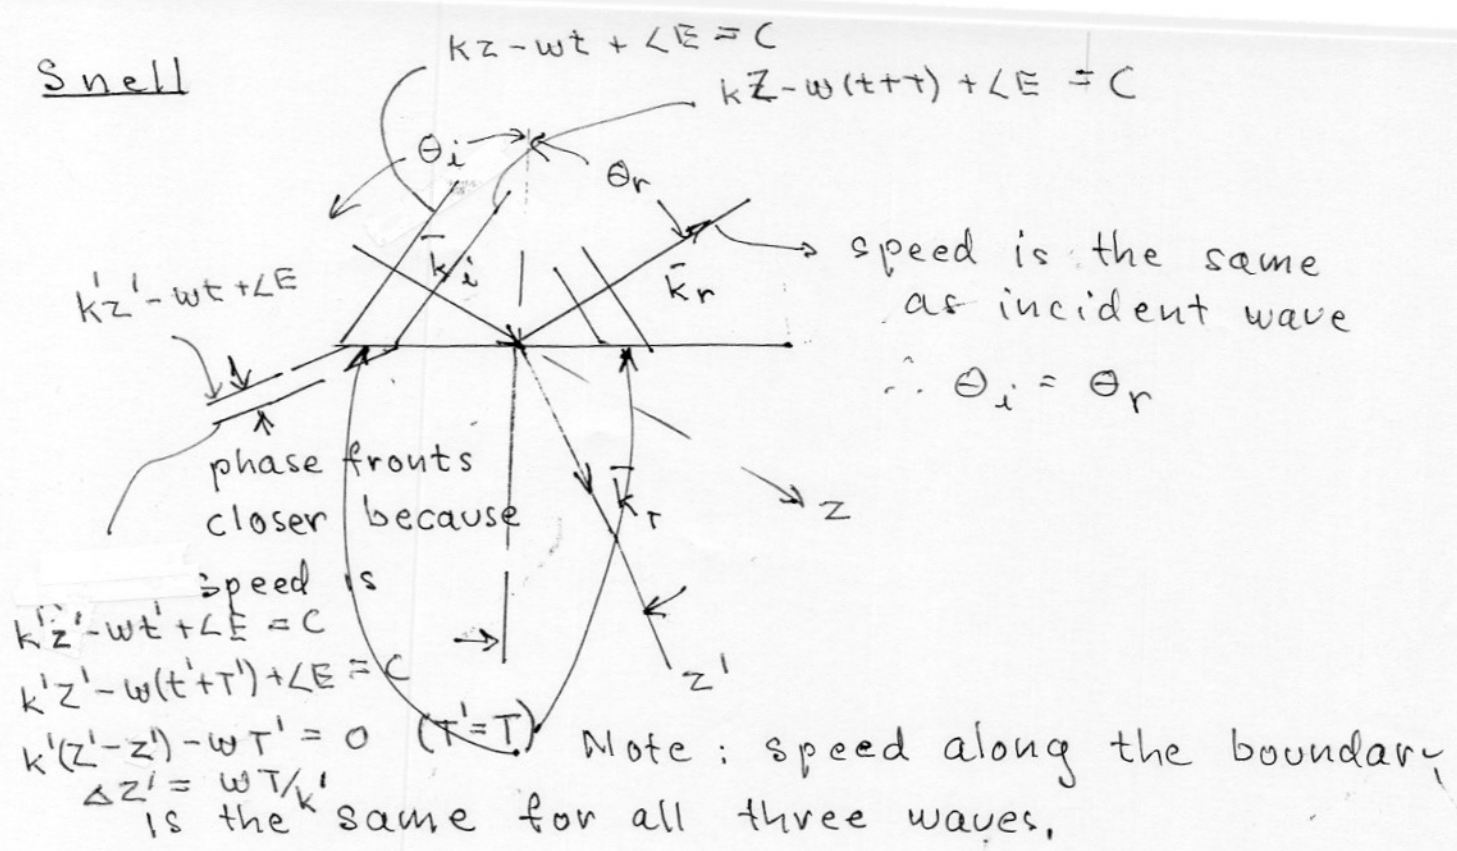 Snell
kz - wt + ∠E = C
kZ - w(t+T) + ∠E = C
θi
θr
k̄i
k̄r
k'z' - wt + ∠E
speed is the same
as incident wave
∴ θi = θr
phase fronts
closer because
speed is
k̄T
z
z'
k'z' - wt' + ∠E = C
k'z' - w(t'+T') + ∠E = C
k'(z'-z') - wT' = 0 (T'=T)
Δz' = wT/k'
Note: speed along the boundary
is the same for all three waves.